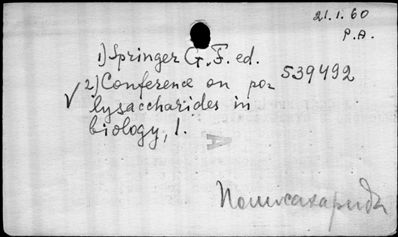 21.1.60
P.A.
1) Springer G. F. ed.
2) Conference on po-
539492
√ lysaccharides in
biology, 1.
A
Полисахариды